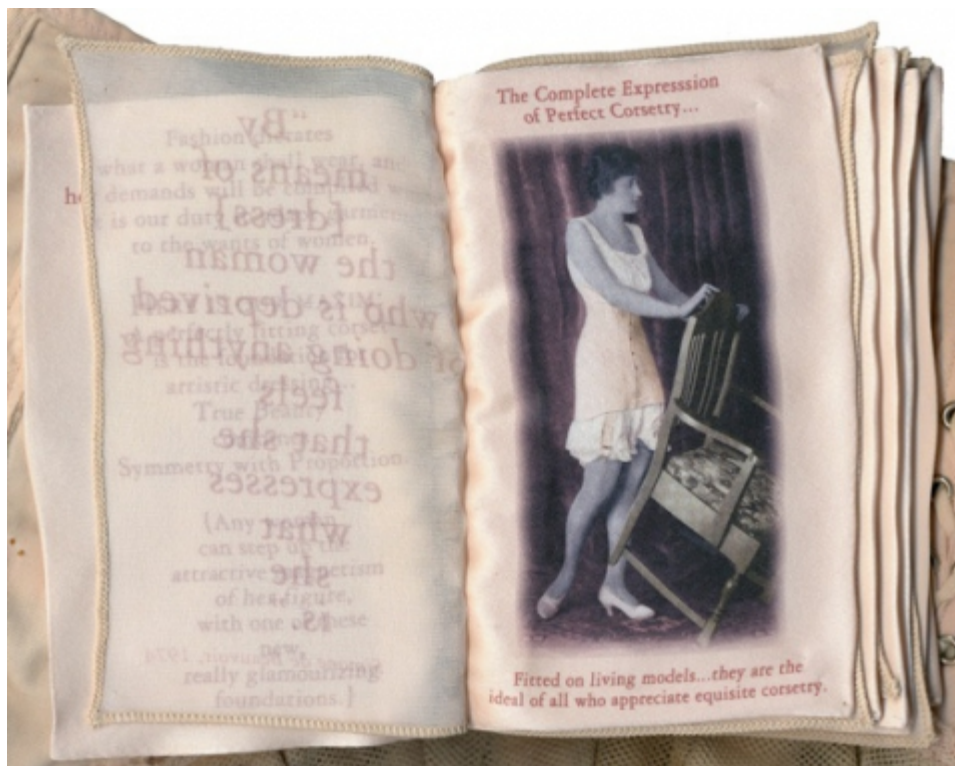 Fashion dictates
what a woman shall wear, and
demands will be complied
is our duty garments
to the wants of women.
MAXIM
A perfectly fitting corset
is the
artistic dressing...
True Beauty
Symmetry with Proportion.
{Any woman
can step up the
attractive magnetism
of her figure,
with one of these
new,
really glamourizing
foundations.}
"By
means of
[dress]
the woman
who is deprived
of doing anything
feels
that she
expresses
what
she
is"
de Beauvoir, 1974
The Complete Expresssion
of Perfect Corsetry...
Fitted on living models...they are the
ideal of all who appreciate equisite corsetry.